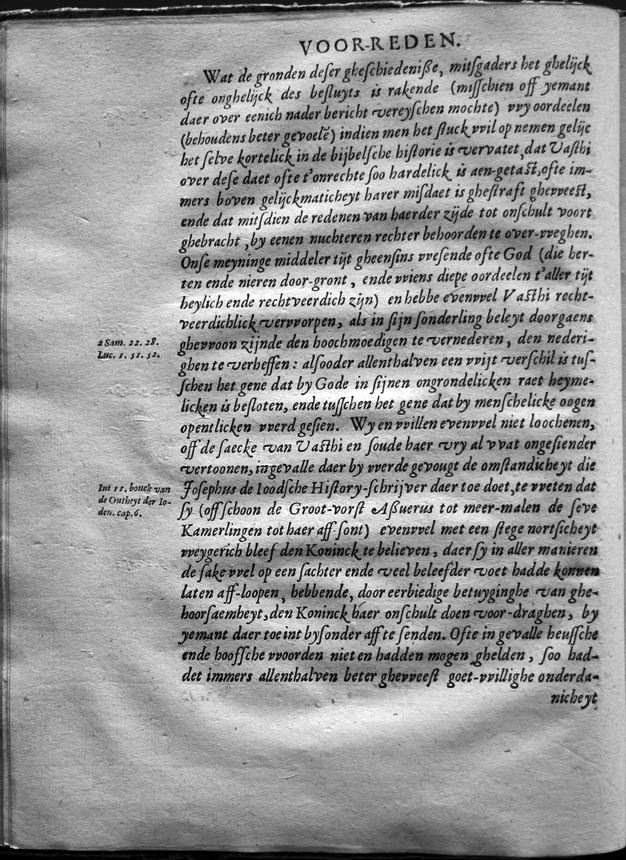 VOOR-REDEN.
Wat de gronden deser gheschiedenisse, mitsgaders het ghelijck
ofte onghelijck des besluyts is rakende (misschien off yemant
daer over eenich nader bericht vereyschen mochte) vvy oordeelen
(behoudens beter gevoelē) indien men het stuck vvil op nemen gelijc
het selve kortelick in de bijbelsche historie is vervatet, dat Vasthi
over dese daet ofte t'onrechte soo hardelick is aen-getast, ofte im-
mers boven gelijckmaticheyt harer misdaet is ghestraft ghevveest,
ende dat mitsdien de redenen van haerder zijde tot onschult voort
ghebracht, by eenen nuchteren rechter behoorden te over-vveghen.
Onse meyninge middeler tijt gheensins vvesende ofte God (die her-
ten ende nieren door-gront, ende vviens diepe oordeelen t'aller tijt
heylich ende rechtveerdich zijn) en hebbe evenvvel Vasthi recht-
veerdichlick vervvorpen, als in sijn sonderling beleyt doorgaens
ghevvoon zijnde den hoochmoedigen te vernederen, den nederi-
2 Sam. 22. 28.
Luc. 1. 51. 52.
ghen te verheffen: alsooder allenthalven een vvijt verschil is tus-
schen het gene dat by Gode in sijnen ongrondelicken raet heyme-
licken is besloten, ende tusschen het gene dat by menschelicke oogen
opentlicken vverd gesien. Wy en vvillen evenvvel niet loochenen,
off de saecke van Vasthi en soude haer vry al vvat ongesiender
vertoonen, ingevalle daer by vverde gevougt de omstandicheyt die
Int 11. bouck van
de Outheyt der Io-
den. cap. 6.
Josephus de Ioodsche History-schrijver daer toe doet, te vveten dat
sy (off schoon de Groot-vorst Assuerus tot meer-malen de seve
Kamerlingen tot haer aff sont) evenvvel met een stege nortsicheyt
vveygerich bleef den Koninck te believen, daer sy in aller manieren
de sake vvel op een sachter ende veel beleefder voet hadde konnen
laten aff-loopen, hebbende, door eerbiedige betuyginghe van ghe-
hoorsaemheyt, den Koninck haer onschult doen voor-draghen, by
yemant daer toe int bysonder aff te senden. Ofte in gevalle heussche
ende hoofsche vvoorden niet en hadden mogen ghelden, soo had-
det immers allenthalven beter ghevveest goet-vvillighe onderda-
nicheyt